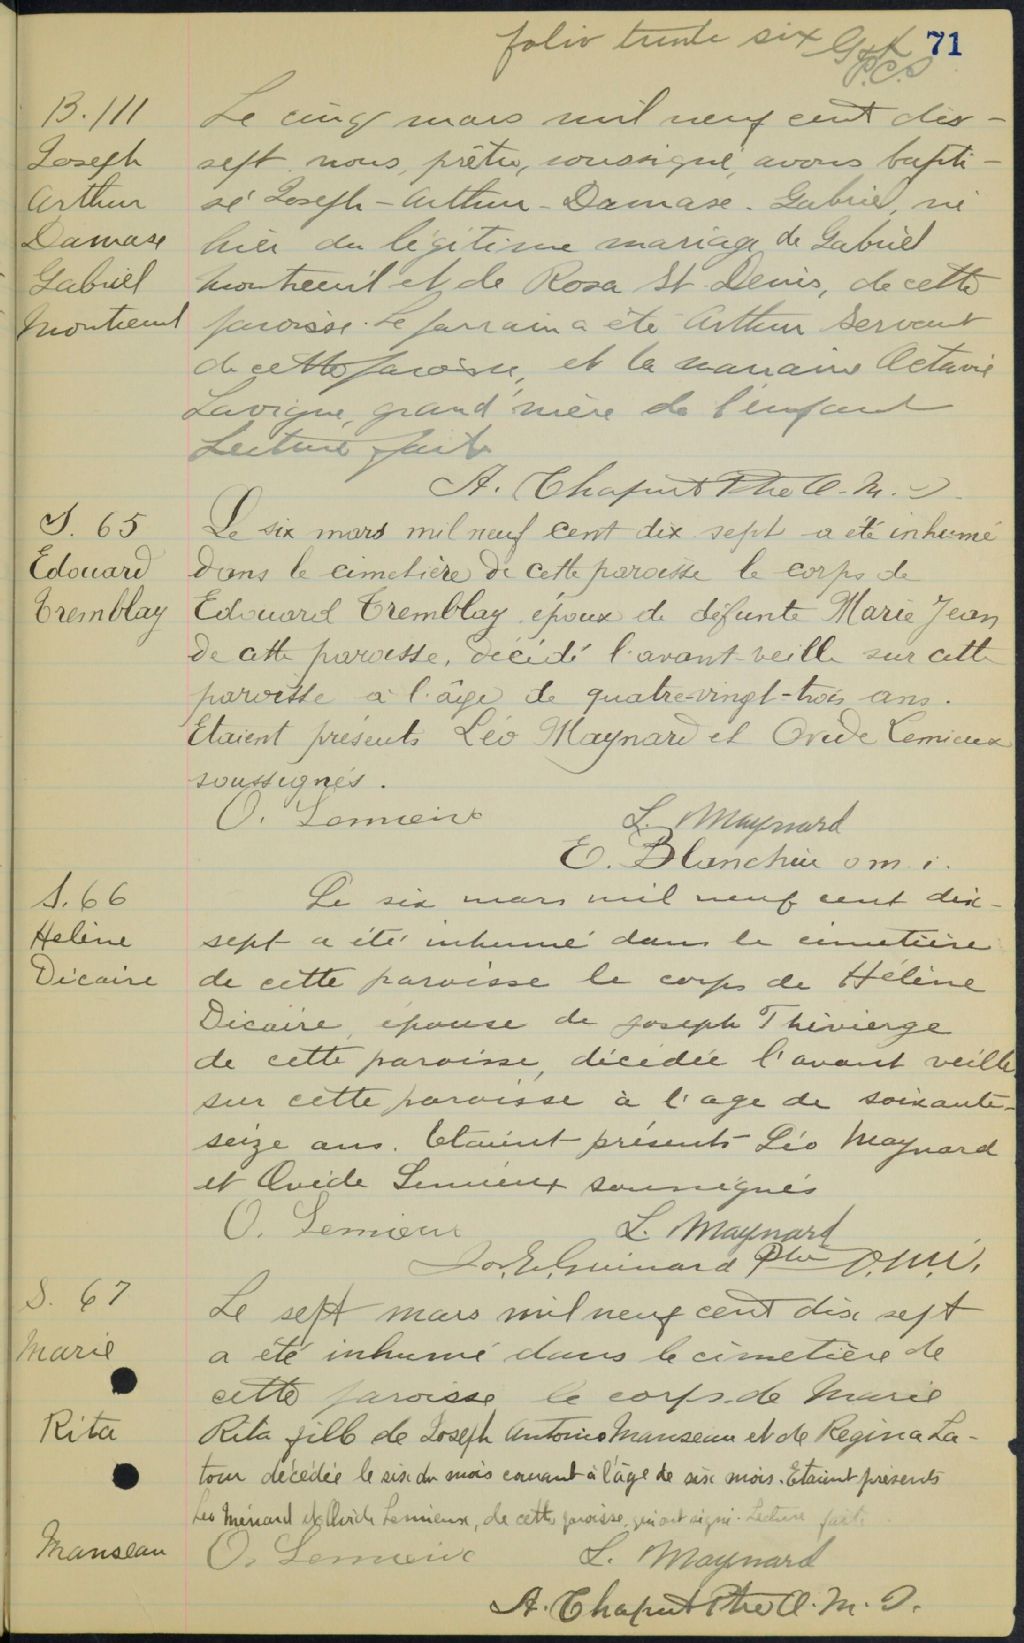 folio trente six G & K 71
P.C.S
B. 111
Joseph
Arthur
Damase
Gabriel
Montreuil
Le cinq mars mil neuf cent dix-
sept nous, prêtre, soussigné, avons bapti-
sé Joseph-Arthur-Damase-Gabriel, né
hier du légitime mariage de Gabriel
Montreuil et de Rosa St Denis, de cette
paroisse. Le parrain a été Arthur Servant
de cette paroisse, et la marraine Octavie
Lavigne, grand'mère de l'enfant
Lecture faite
A. Chaput Ptre O.M.I.
S. 65
Edouard
Tremblay
Le six mars mil neuf cent dix sept a été inhumé
dans le cimetière de cette paroisse le corps de
Edouard Tremblay époux de défunte Marie Jean
de cette paroisse, décédé l'avant-veille sur cette
paroisse à l'âge de quatre-vingt-trois ans.
Etaient présents Léo Maynard et Ovide Lemieux
soussignés.
O. Lemieux L. Maynard
E. Blanchin o m i.
S. 66
Hélène
Dicaire
Le six mars mil neuf cent dix-
sept a été inhumé dans le cimetière
de cette paroisse le corps de Hélène
Dicaire, épouse de Joseph Thivierge
de cette paroisse, décédée l'avant veille
sur cette paroisse à l'age de soixante-
seize ans. Etaient présents Léo Maynard
et Ovide Lemieux soussignés
O. Lemieux L. Maynard
Jos. E. Guinard Ptre O.M.I.
S. 67
Marie
Rita
Manseau
Le sept mars mil neuf cent dix sept
a été inhumé dans le cimetière de
cette paroisse le corps de Marie
Rita fille de Joseph Antonio Manseau et de Regina La-
tour décédée le six du mois courant à l'âge de six mois. Etaient présents
Léo Ménard et Ovide Lemieux, de cette paroisse, qui ont signé. Lecture faite.
O. Lemieux L. Maynard
A. Chaput Ptre O.M.I.